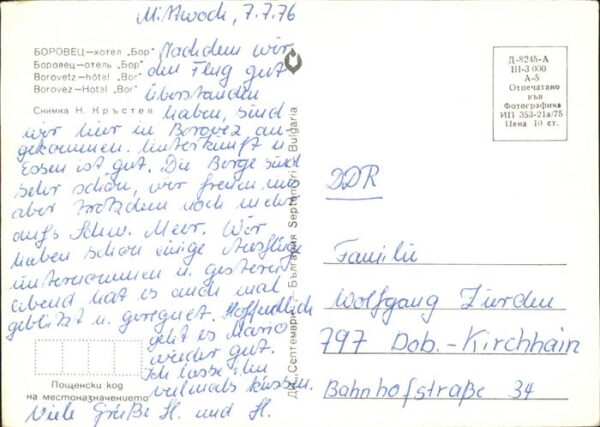 Mittwoch, 7.7.76
БОРОВЕЦ—хотел „Бор"
Боровец—отель „Бор"
Borovetz—hôtel „Bor"
Borovez—Hotel „Bor"
Снимка Н. Кръстев
Nachdem wir
den Flug gut
überstanden
haben, sind
wir hier in Borovez an-
gekommen. Unterkunft u.
Essen ist gut. Die Berge sind
sehr schön, wir freuen uns
aber trotzdem noch mehr
aufs Schw. Meer. Wir
haben schon einige Ausflüge
unternommen u. gestern
abend hat es auch mal
geblitzt u. geregnet. Hoffentlich
geht es Mario
wieder gut.
Ich lasse ihn
vielmals küssen.
Viele Grüße H. und H.
Пощенски код
на местоназначението
ДП „Септември" България Septemvri Bulgaria
Д-8245-А
III-3 000
А-5
Отпечатано
във
Фотографика
ИП 353-21а/75
Цена 10 ст.
DDR
Familie
Wolfgang
797 Dob.-Kirchhain
Bahnhofstraße 34